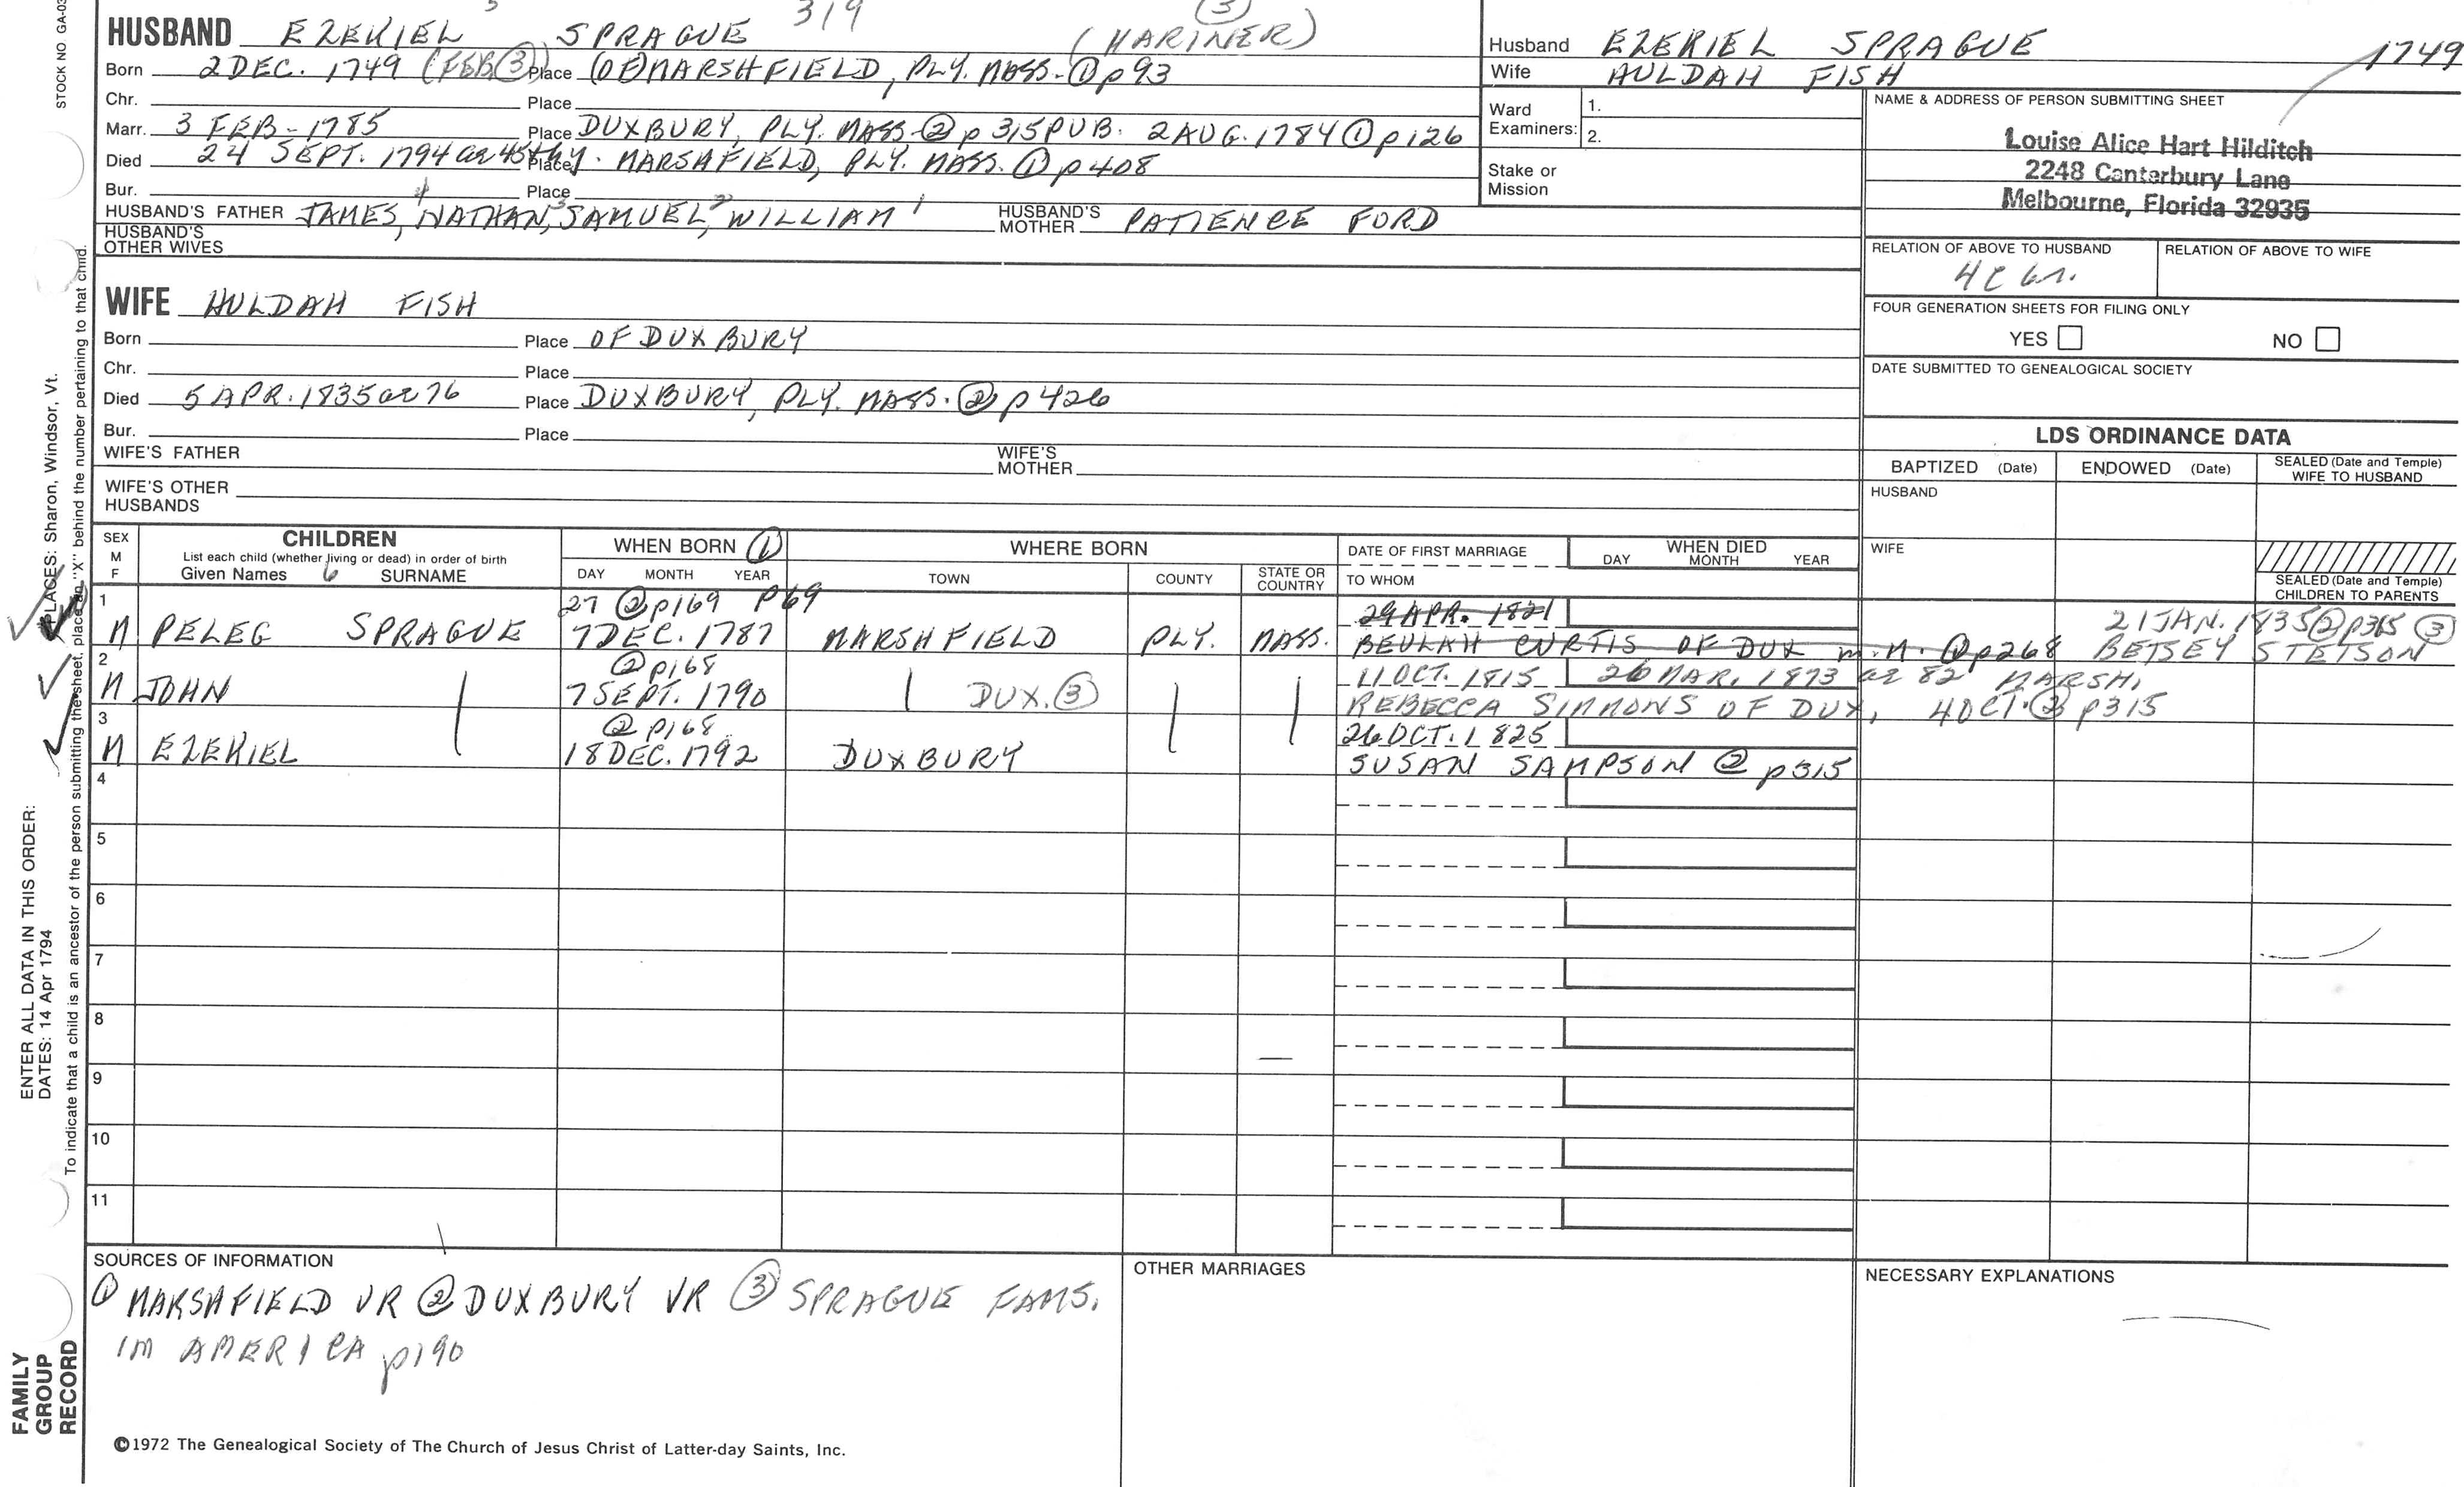 STOCK NO. GA-03
5 319 (3)
HUSBAND EZEKIEL SPRAGUE (MARINER)
Born 2 DEC. 1749 (FEB (3)) Place (OF) MARSHFIELD, PLY. MASS. (1) p93
Chr. Place
Marr. 3 FEB - 1785 Place DUXBURY, PLY. MASS. (2) p 315 PUB. 2 AUG. 1784 (1) p126
Died 24 SEPT. 1794 ae 45th y. Place MARSHFIELD, PLY. MASS. (1) p 408
Bur. Place
HUSBAND'S FATHER JAMES,4 NATHAN,3 SAMUEL,2 WILLIAM 1 HUSBAND'S MOTHER PATIENCE FORD
HUSBAND'S OTHER WIVES
WIFE HULDAH FISH
Born Place OF DUXBURY
Chr. Place
Died 5 APR. 1835 ae 76 Place DUXBURY, PLY. MASS. (2) p 426
Bur. Place
WIFE'S FATHER WIFE'S MOTHER
WIFE'S OTHER HUSBANDS
Husband EZEKIEL SPRAGUE 1749
Wife HULDAH FISH
Ward Examiners: 1.
2.
Stake or Mission
NAME & ADDRESS OF PERSON SUBMITTING SHEET
Louise Alice Hart Hilditch
2248 Canterbury Lane
Melbourne, Florida 32935
RELATION OF ABOVE TO HUSBAND RELATION OF ABOVE TO WIFE
4C 6r.
FOUR GENERATION SHEETS FOR FILING ONLY
YES NO
DATE SUBMITTED TO GENEALOGICAL SOCIETY
LDS ORDINANCE DATA
BAPTIZED (Date) ENDOWED (Date) SEALED (Date and Temple) WIFE TO HUSBAND
HUSBAND
WIFE
SEALED (Date and Temple) CHILDREN TO PARENTS
SEX M F
CHILDREN
List each child (whether living or dead) in order of birth
Given Names 6 SURNAME
WHEN BORN (1)
DAY MONTH YEAR
WHERE BORN
TOWN COUNTY STATE OR COUNTRY
DATE OF FIRST MARRIAGE
TO WHOM
WHEN DIED
DAY MONTH YEAR
1 27 (2) p169 p69 29 APR. 1821 21 JAN. 1835 (2) p315 (3)
M PELEG SPRAGUE 7 DEC. 1787 MARSHFIELD PLY. MASS. BEULAH CURTIS OF DUX m. M. (1) p268 BETSEY STETSON
2 (2) p168 11 OCT. 1815 26 MAR. 1873 ae 82 MARSH,
M JOHN 7 SEPT. 1790 DUX. (3) REBECCA SIMMONS OF DUX, 4 OCT. (2) p315
3 (2) p168 26 OCT. 1825
M EZEKIEL 18 DEC. 1792 DUXBURY SUSAN SAMPSON (2) p315
4
5
6
7
8
9
10
11
SOURCES OF INFORMATION
(1) MARSHFIELD VR (2) DUXBURY VR (3) SPRAGUE FAMS.
IM AMERICA p190
OTHER MARRIAGES
NECESSARY EXPLANATIONS
©1972 The Genealogical Society of The Church of Jesus Christ of Latter-day Saints, Inc.
ENTER ALL DATA IN THIS ORDER:
DATES: 14 Apr 1794 PLACES: Sharon, Windsor, Vt.
To indicate that a child is an ancestor of the person submitting the sheet, place an "X" behind the number pertaining to that child.
FAMILY
GROUP
RECORD